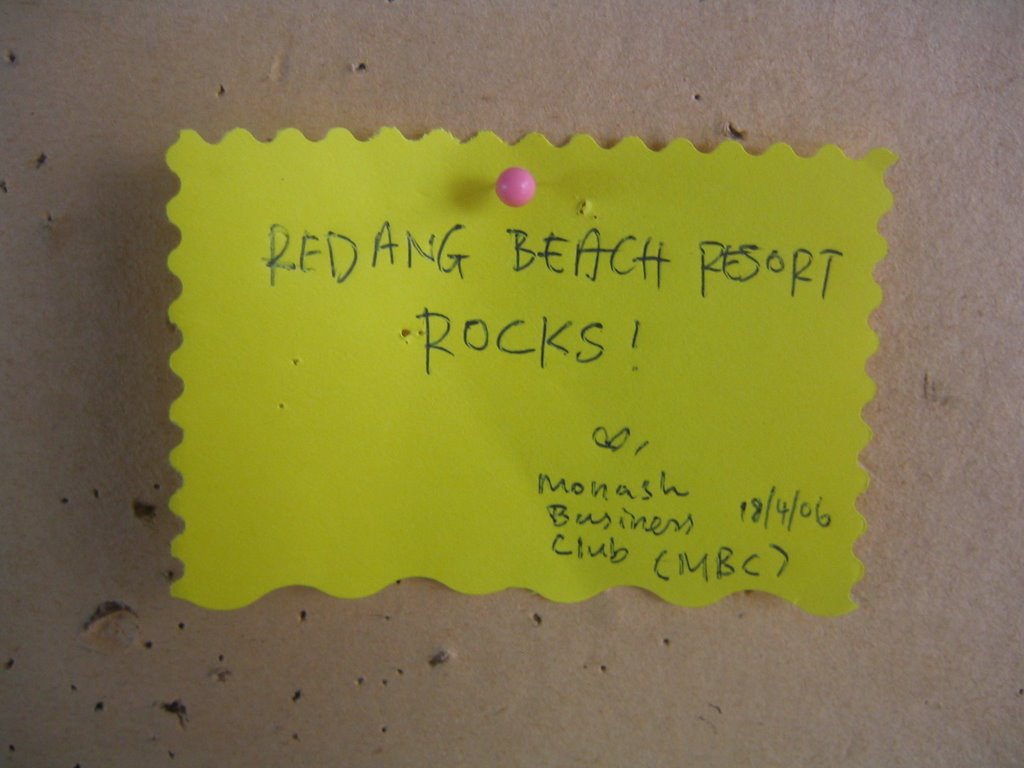 REDANG BEACH RESORT
ROCKS!
∞,
Monash
Business 18/4/06
Club (MBC)